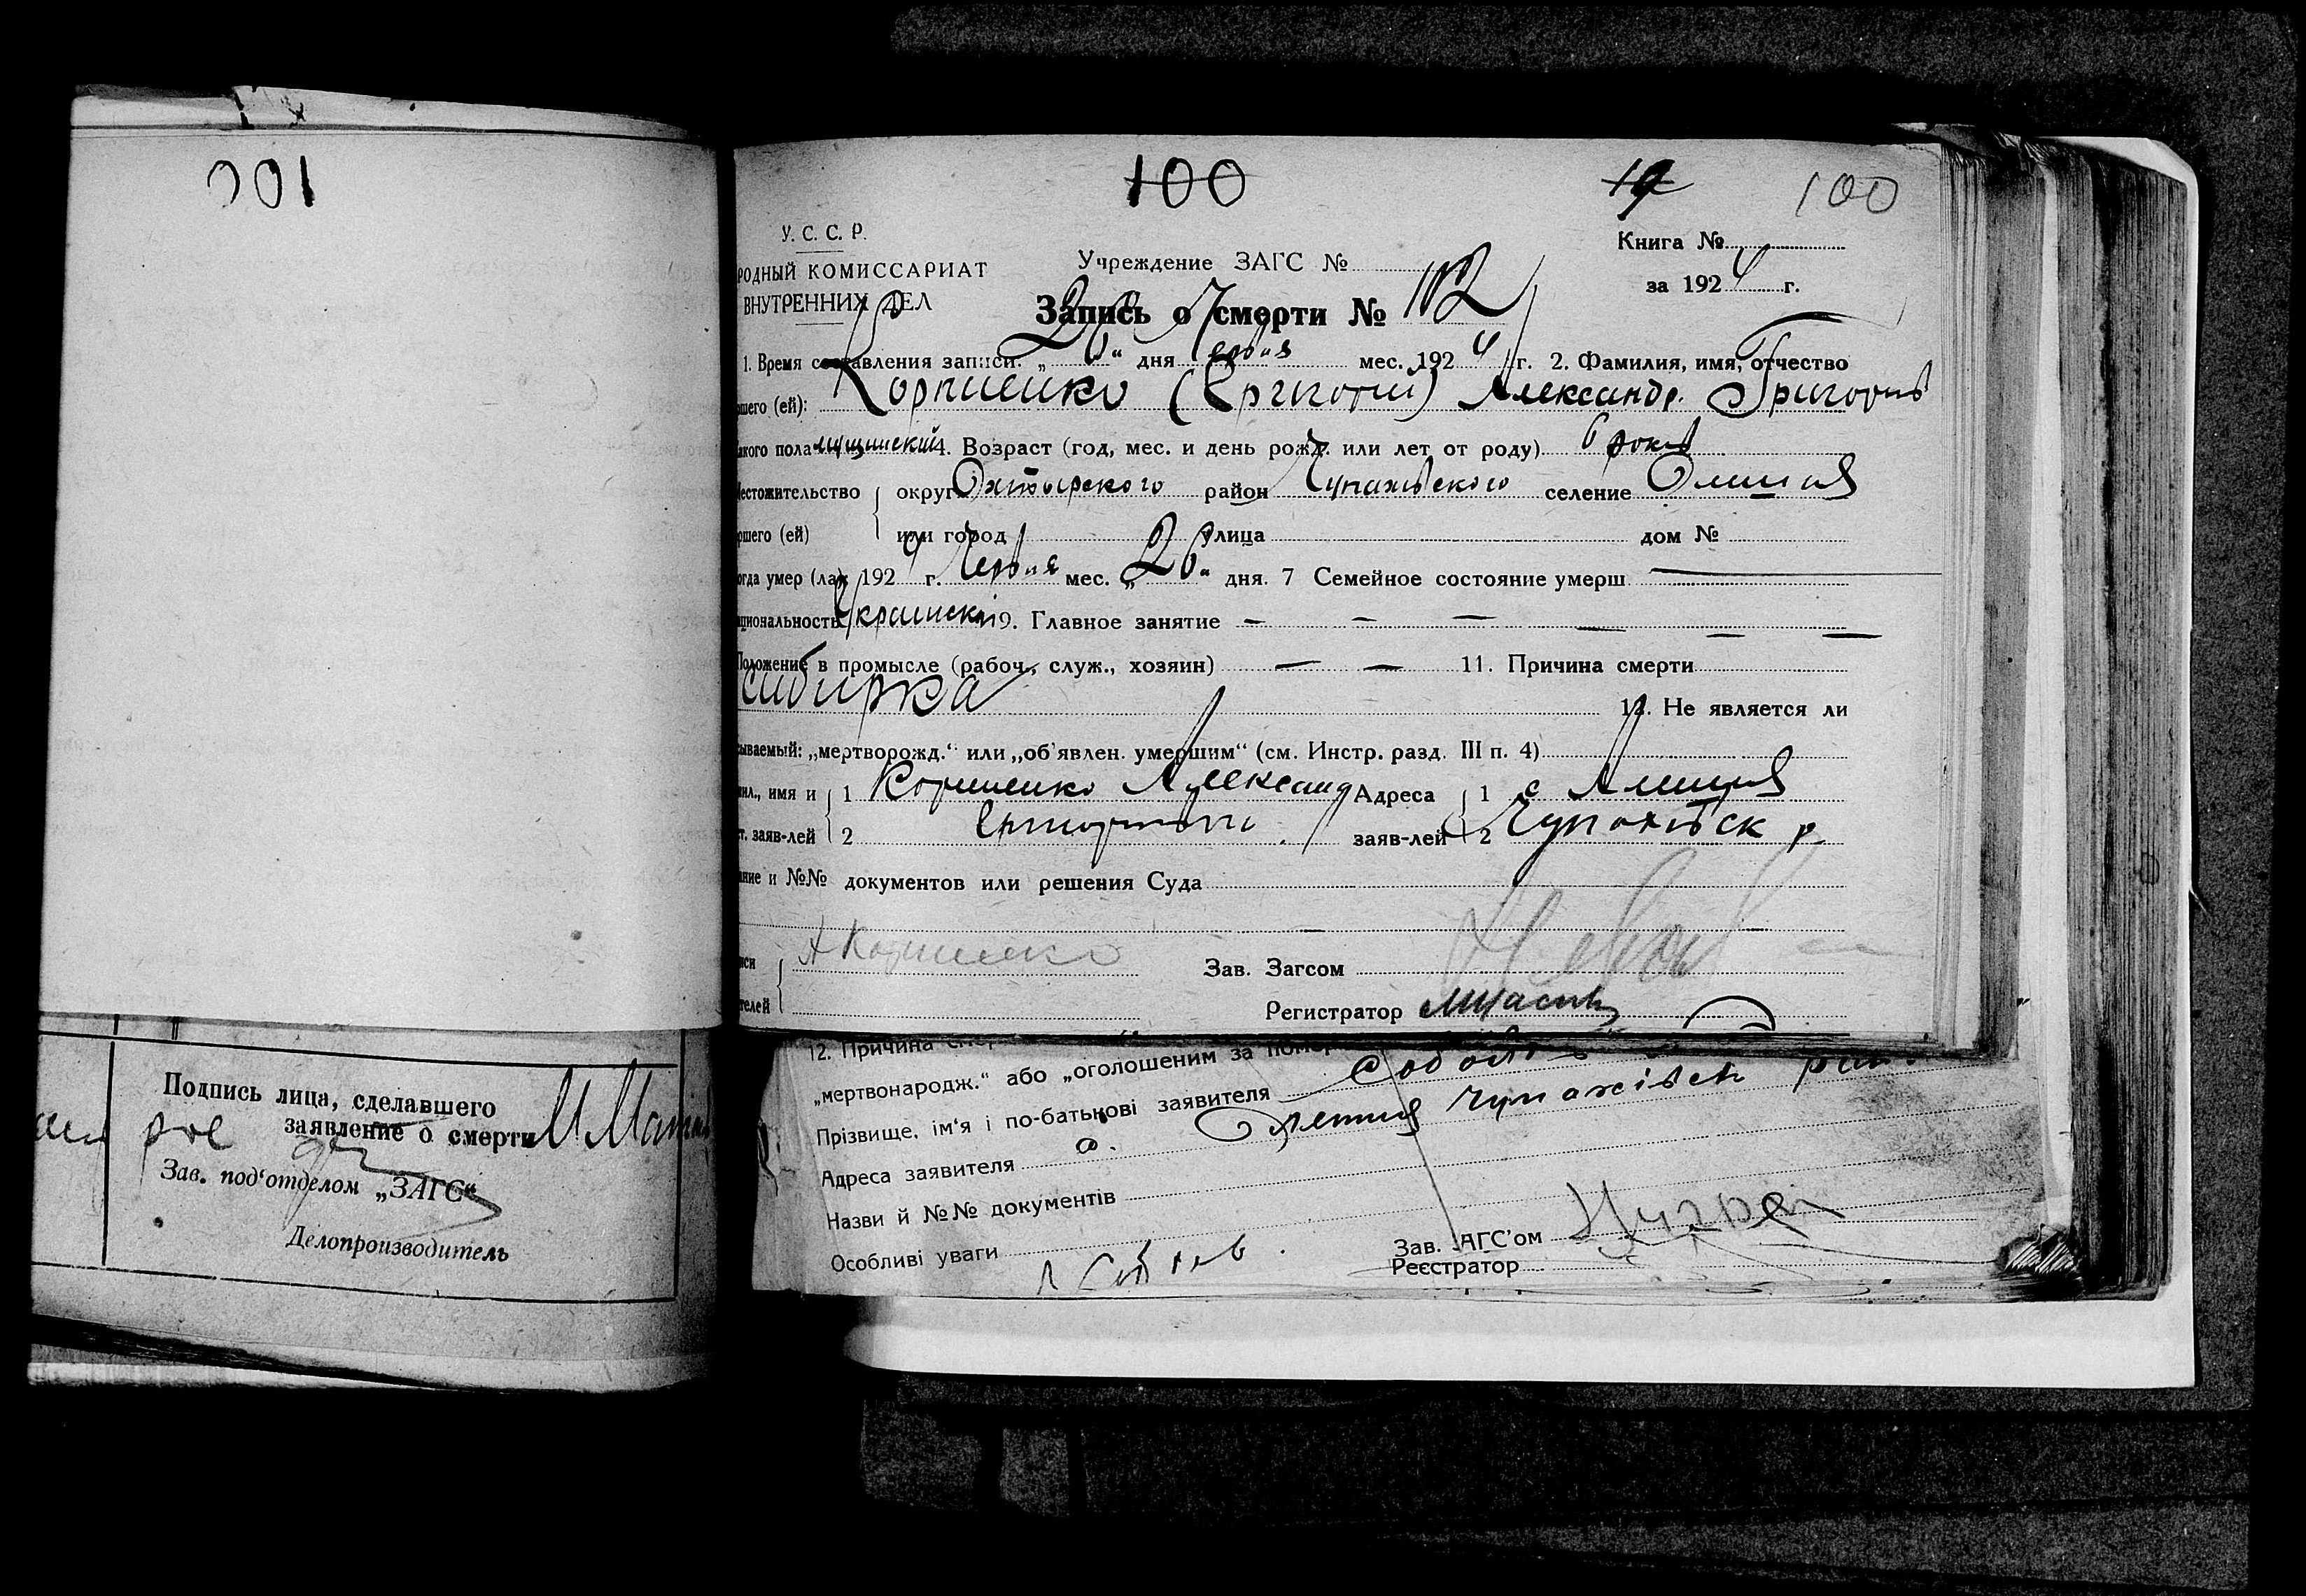 100
100
19
100
У. С. С. Р.
Книга №
РОДНЫЙ КОМИССАРИАТ
Учреждение ЗАГС №
ВНУТРЕННИХ ДЕЛ
за 1924 г.
Запись о смерти № 102
1. Время составления записи: „26“ дня Червня мес. 1924 г. 2. Фамилия, имя, отчество
ршего (ей): Корниенко Александр. Григорів
акого пола мущинский 4. Возраст (год, мес. и день рожд. или лет от роду) 6 років
Местожительство округ Охтырского район Чупахівского селение Олешня
ршего (ей) или город улица дом №
огда умер (ла) 1924 г. Червня мес. „26“ дня. 7 Семейное состояние умерш.
циональность 9. Главное занятие — — — — — —
Положение в промысле (рабоч., служ., хозяин) — — 11. Причина смерти
сибирка 12. Не является ли
сываемый: „мертворожд.“ или „об'явлен. умершим“ (см. Инстр. разд. III п. 4)
мил., имя и 1 Корниенко Александ Адреса 1 с
т. заяв-лей 2 заяв-лей 2 Чупахівск р
ание и №№ документов или решения Суда
иси А Корниенко Зав. Загсом
телей Регистратор
12. Причина
„мертвонародж.“ або „оголошеним за
Прізвище, ім'я і по-батькові заявителя
Адреса заявителя с. Олешня Чупахівськ
Назви й №№ документів
Особливі уваги
Зав. ЗАГС'ом
Реєстратор
Подпись лица, сделавшего
заявление о смерти
Зав. под'отделом „ЗАГС“
Делопроизводитель